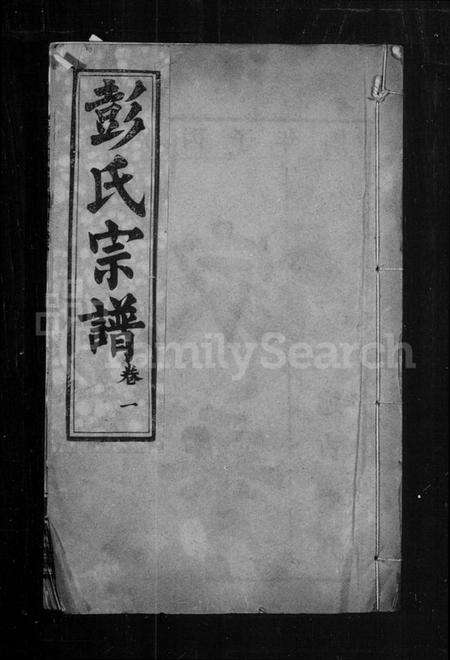 彭氏宗譜
卷一
FamilySearch